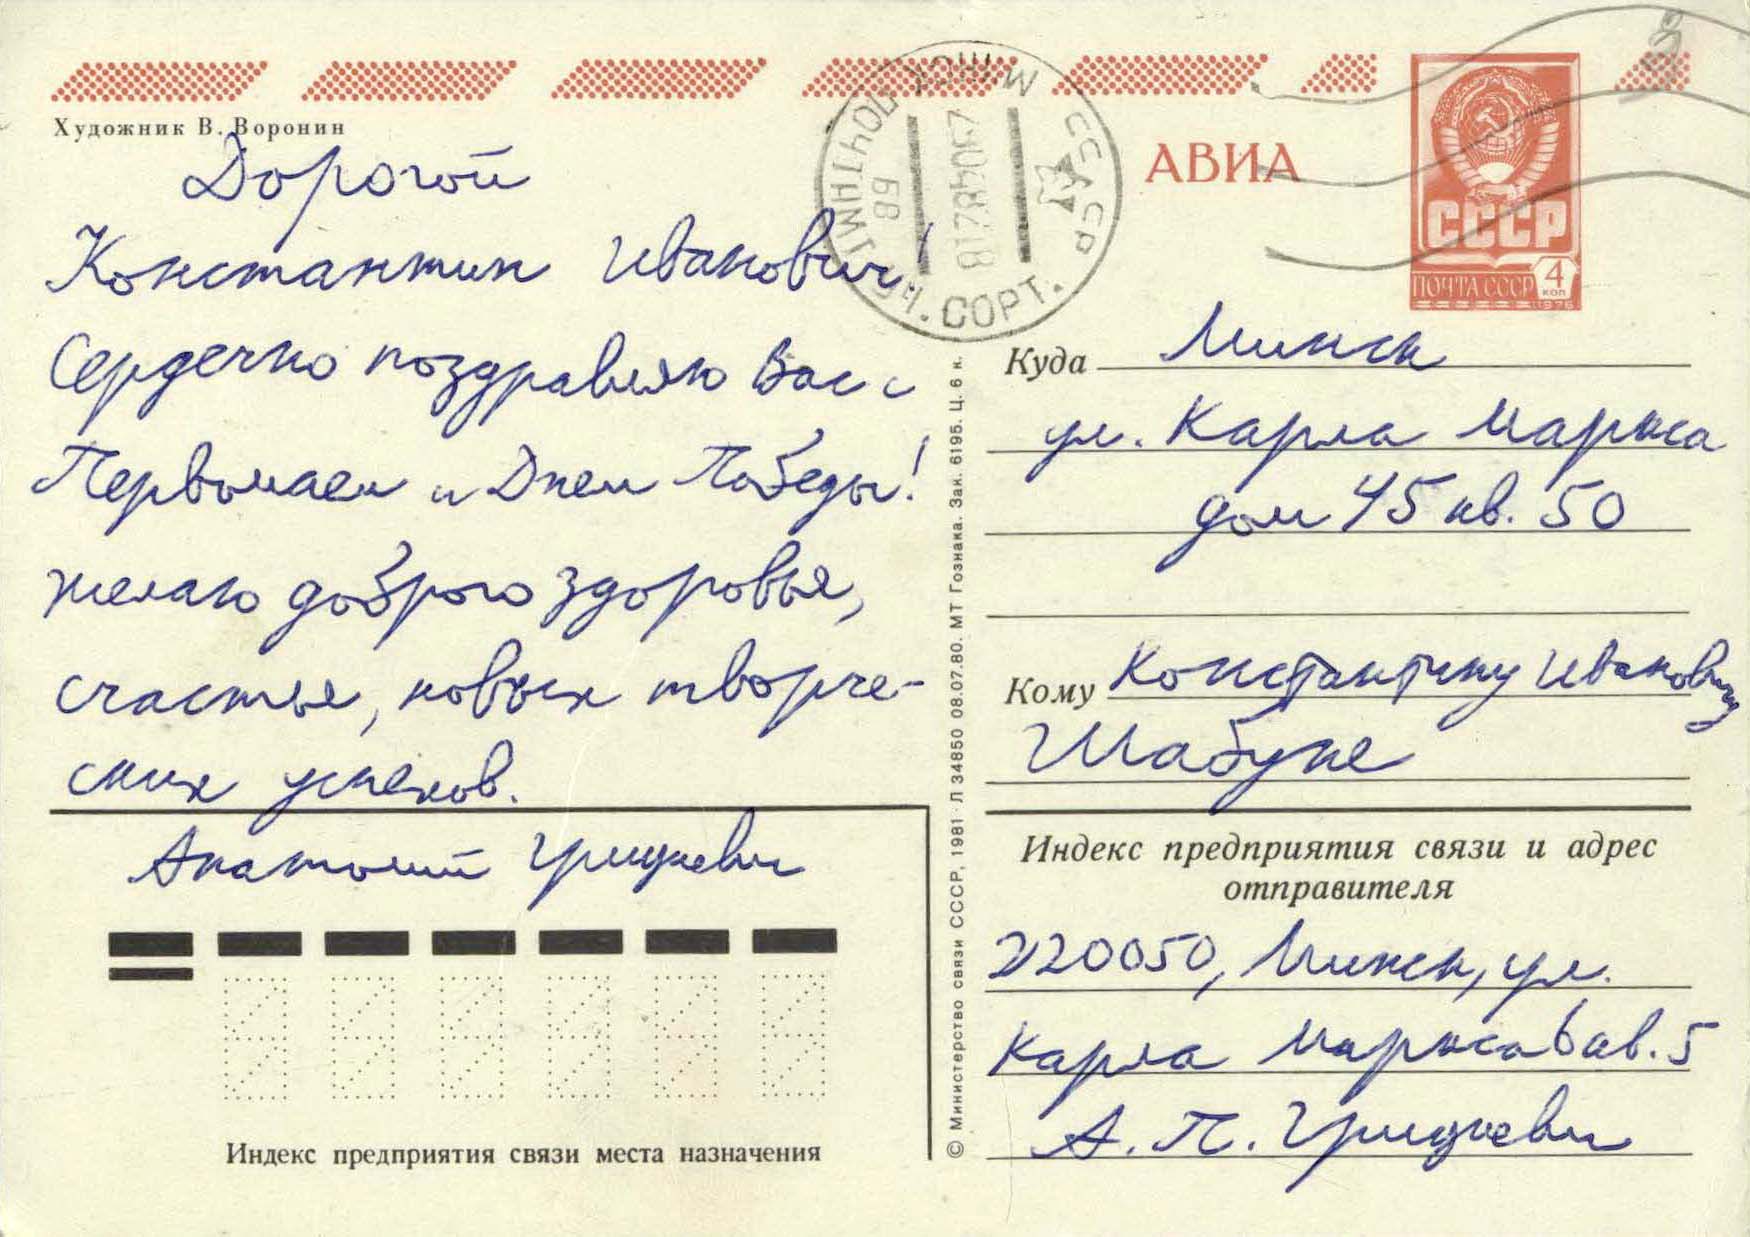 Художник В. Воронин
Дорогой
Константин Иванович!
Сердечно поздравляю Вас с
Первомаем и Днем Победы!
Желаю доброго здоровья,
счастья, новых творче-
ских успехов.
Анатолий Грицкевич
Индекс предприятия связи места назначения
МИНСК ПОЧТАМТ
СССР
68
250481 2 18
УЧ. СОРТ.
АВИА
СССР
ПОЧТА СССР 4 КОП
1976
Куда Минск
ул. Карла Маркса
дом 45 кв. 50
Кому Константину Ивановичу
Шабуне
Индекс предприятия связи и адрес
отправителя
220050, Минск, ул.
Карла Маркса 6 кв. 5
А. П. Грицкевич
© Министерство связи СССР, 1981 · Л 34850 08.07.80. МТ Гознака. Зак. 6195. Ц. 6 к.